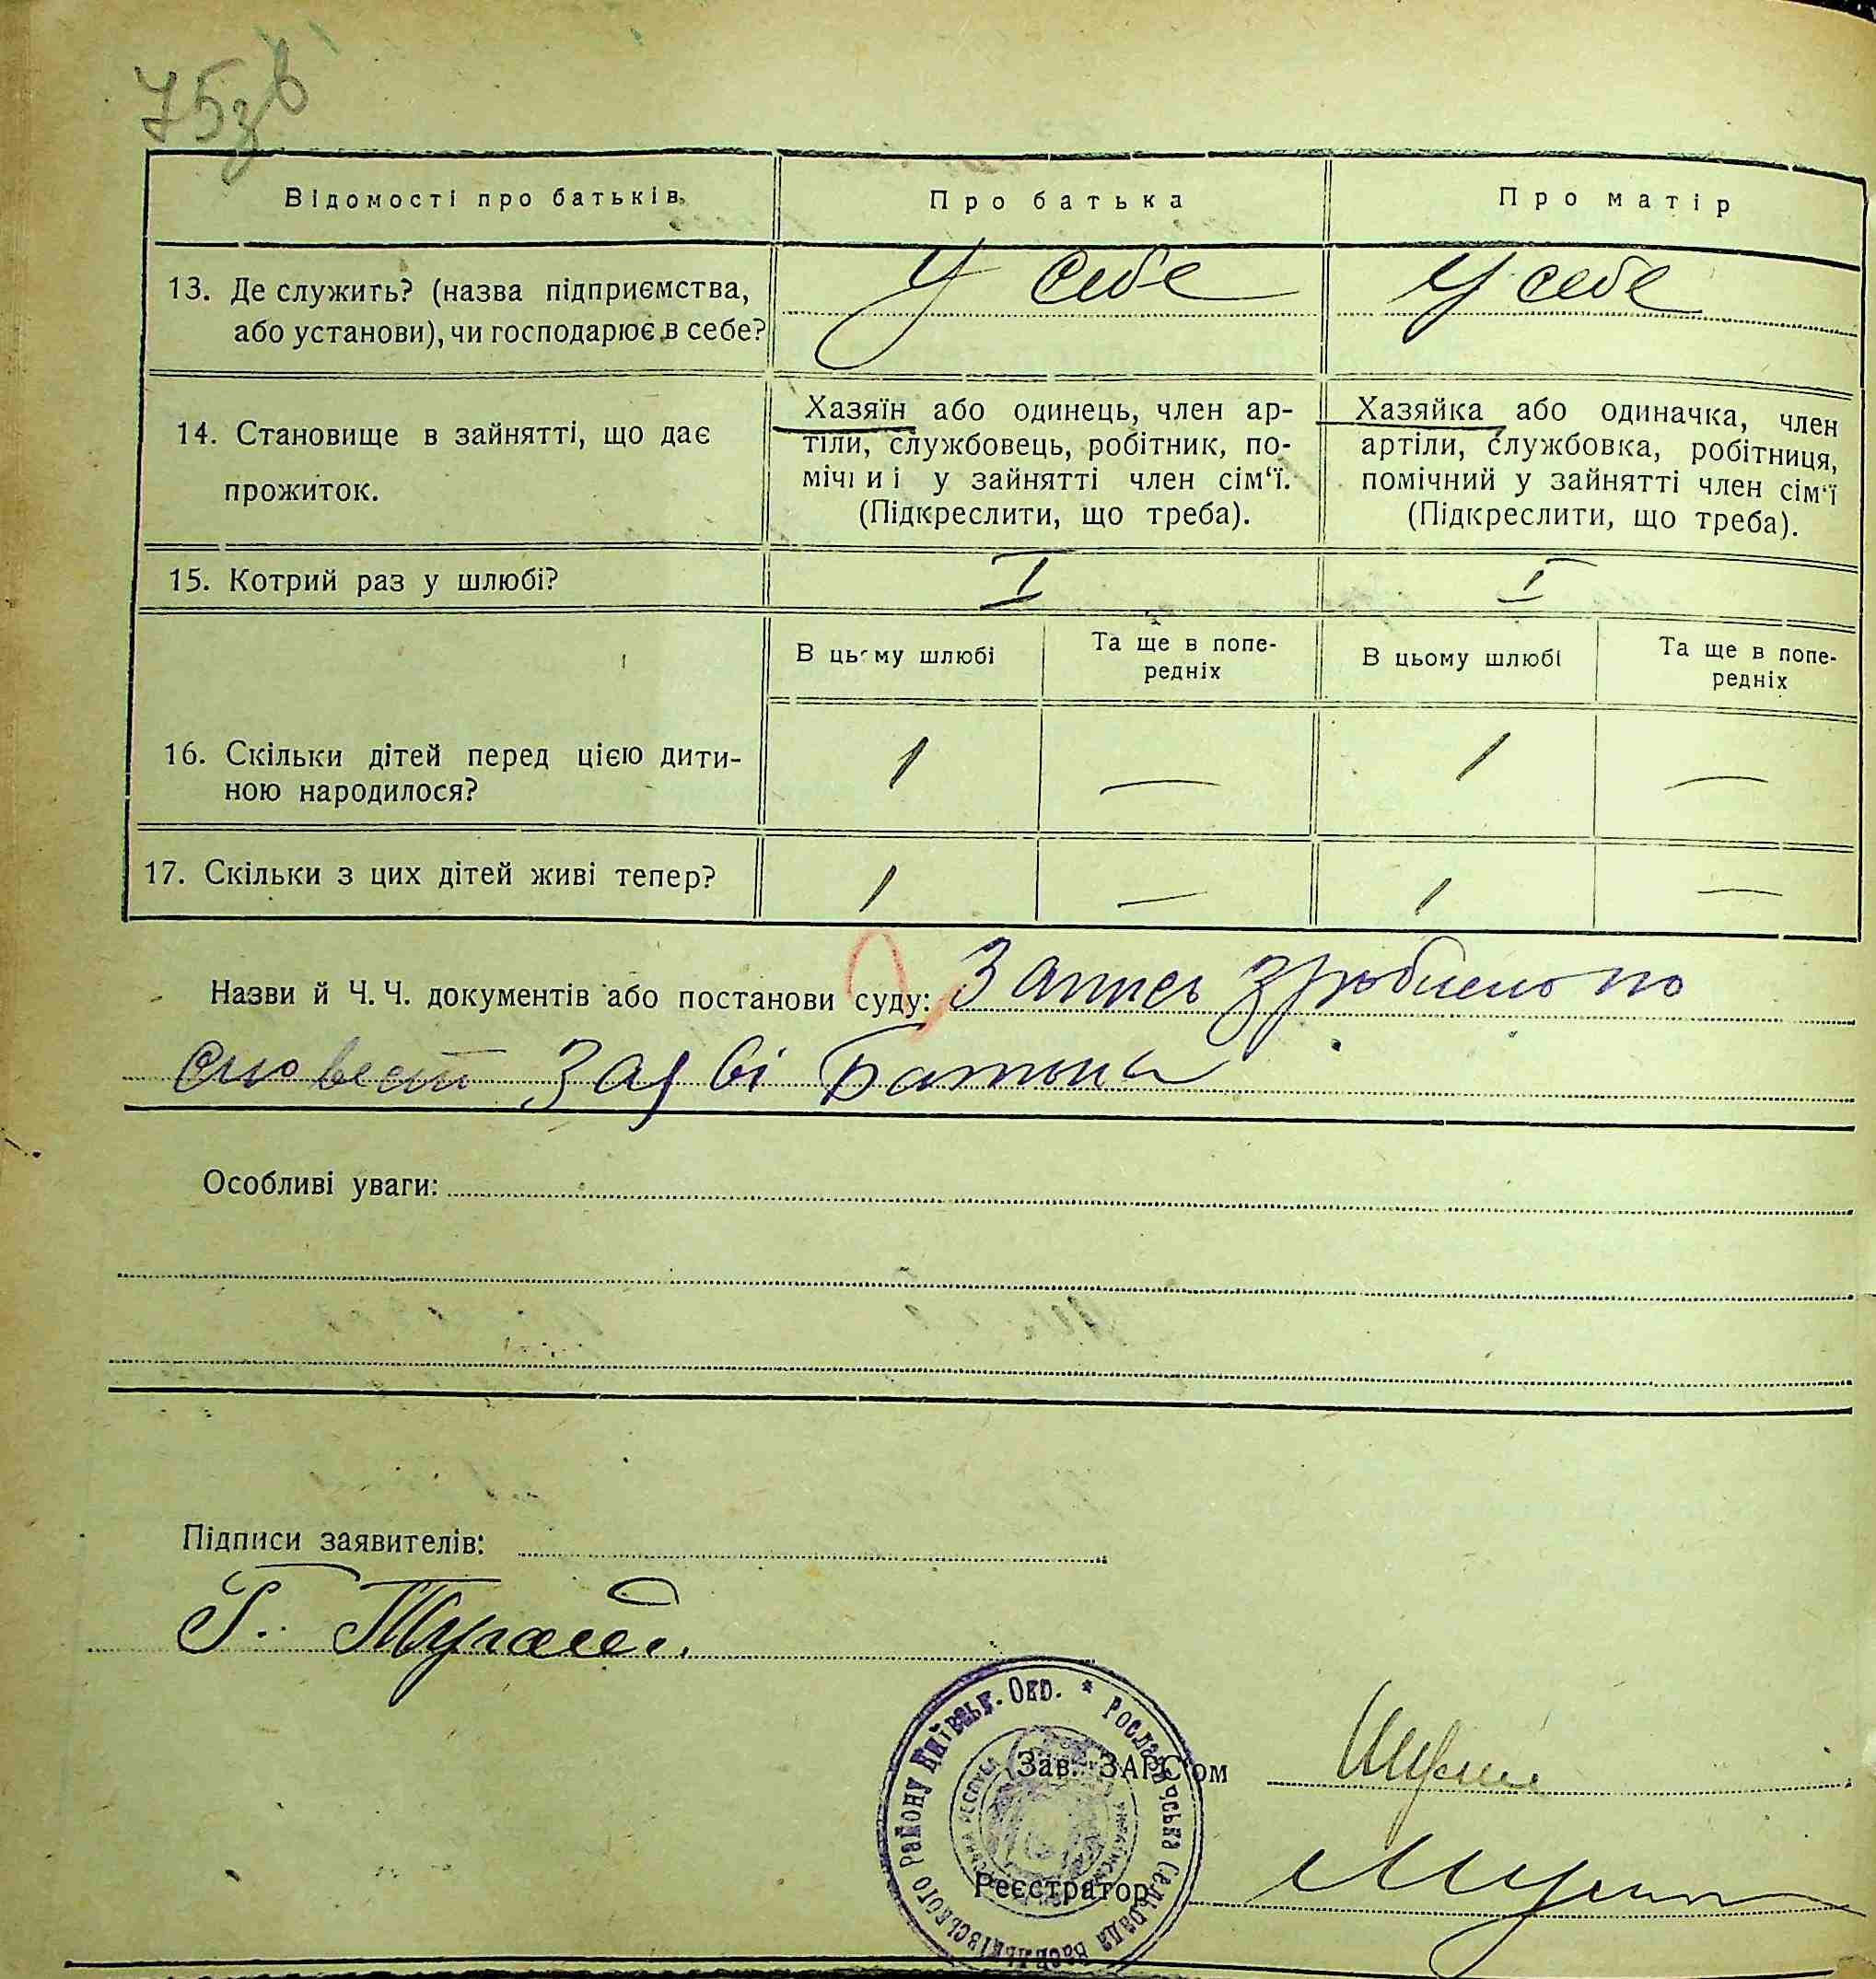 75зв
Відомості про батьків
Про батька
Про матір
13. Де служить? (назва підприємства,
або установи), чи господарює в себе?
У себе
У себе
14. Становище в зайнятті, що дає
прожиток.
Хазяїн або одинець, член ар-
тіли, службовець, робітник, по-
мічниі у зайнятті член сім'ї.
(Підкреслити, що треба).
Хазяйка або одиначка, член
артіли, службовка, робітниця,
помічний у зайнятті член сім'ї
(Підкреслити, що треба).
15. Котрий раз у шлюбі?
I
I
В цьому шлюбі
Та ще в попе-
редніх
В цьому шлюбі
Та ще в попе-
редніх
16. Скільки дітей перед цією дити-
ною народилося?
1
—
1
—
17. Скільки з цих дітей живі тепер?
1
—
1
—
Назви й Ч. Ч. документів або постанови суду: Запись зроблено по
словесні заяві батька
Особливі уваги:
Підписи заявителів:
Г.
Зав. ЗАГС'ом
Реєстратор
Рославичська Сельрада Васильківського Району Київськ. Окр. *